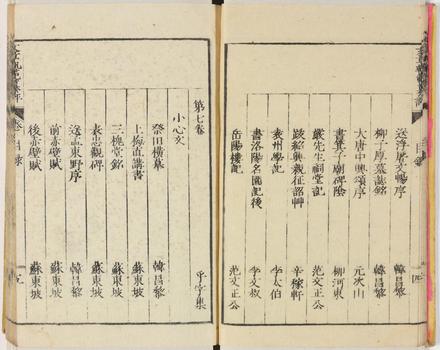 送浮屠文暢序 韓昌黎
柳子厚墓誌銘 韓昌黎
大唐中興頌序 元次山
書箕子廟碑陰 柳河東
嚴先生祠堂記 范文正公
跋紹興親征詔草 辛稼軒
袁州學記 李太伯
書洛陽名園記後 李文叔
岳陽樓記 范文正公
第七卷
小心文 乎字集
祭田横墓 韓昌黎
上梅直講書 蘇東坡
三槐堂銘 蘇東坡
表忠觀碑 蘇東坡
送孟東野序 韓昌黎
前赤壁賦 蘇東坡
後赤壁賦 蘇東坡